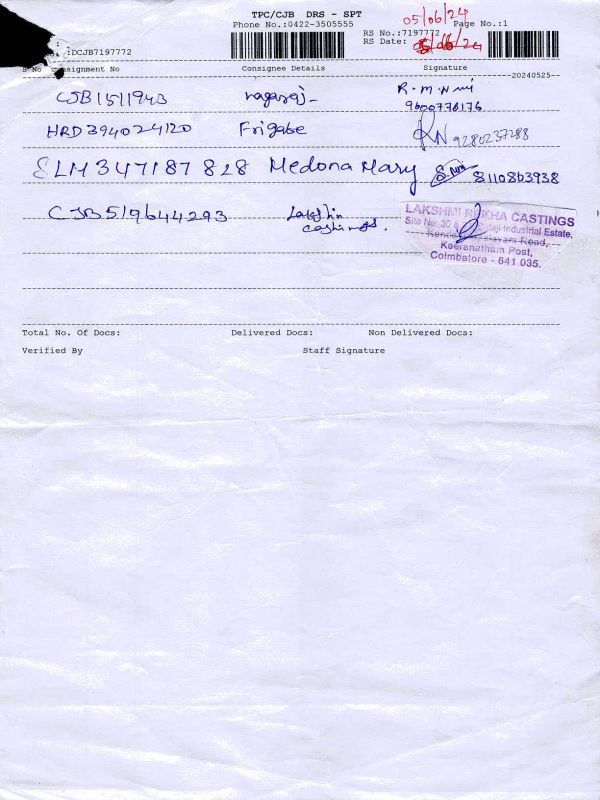 TPC/CJB DRS - SPT
05/06/24
Phone No.:0422-3505555
Page No.:1
RS No.:7197772
RS Date: 05/06/24
:DCJB7197772
S No Consignment No Consignee Details Signature
20240525
CJB1511943 nagaraj R.M.
9600776176
HRD394024120 Frigabe
9280237288
ELM347187828 Medona Mary 8110803938
CJB519644293
LAKSHMI REKHA CASTINGS
Site No: 30 & Industrial Estate,
Road,
Keeranatham Post,
Coimbatore - 641 035.
Total No. Of Docs: Delivered Docs: Non Delivered Docs:
Verified By Staff Signature